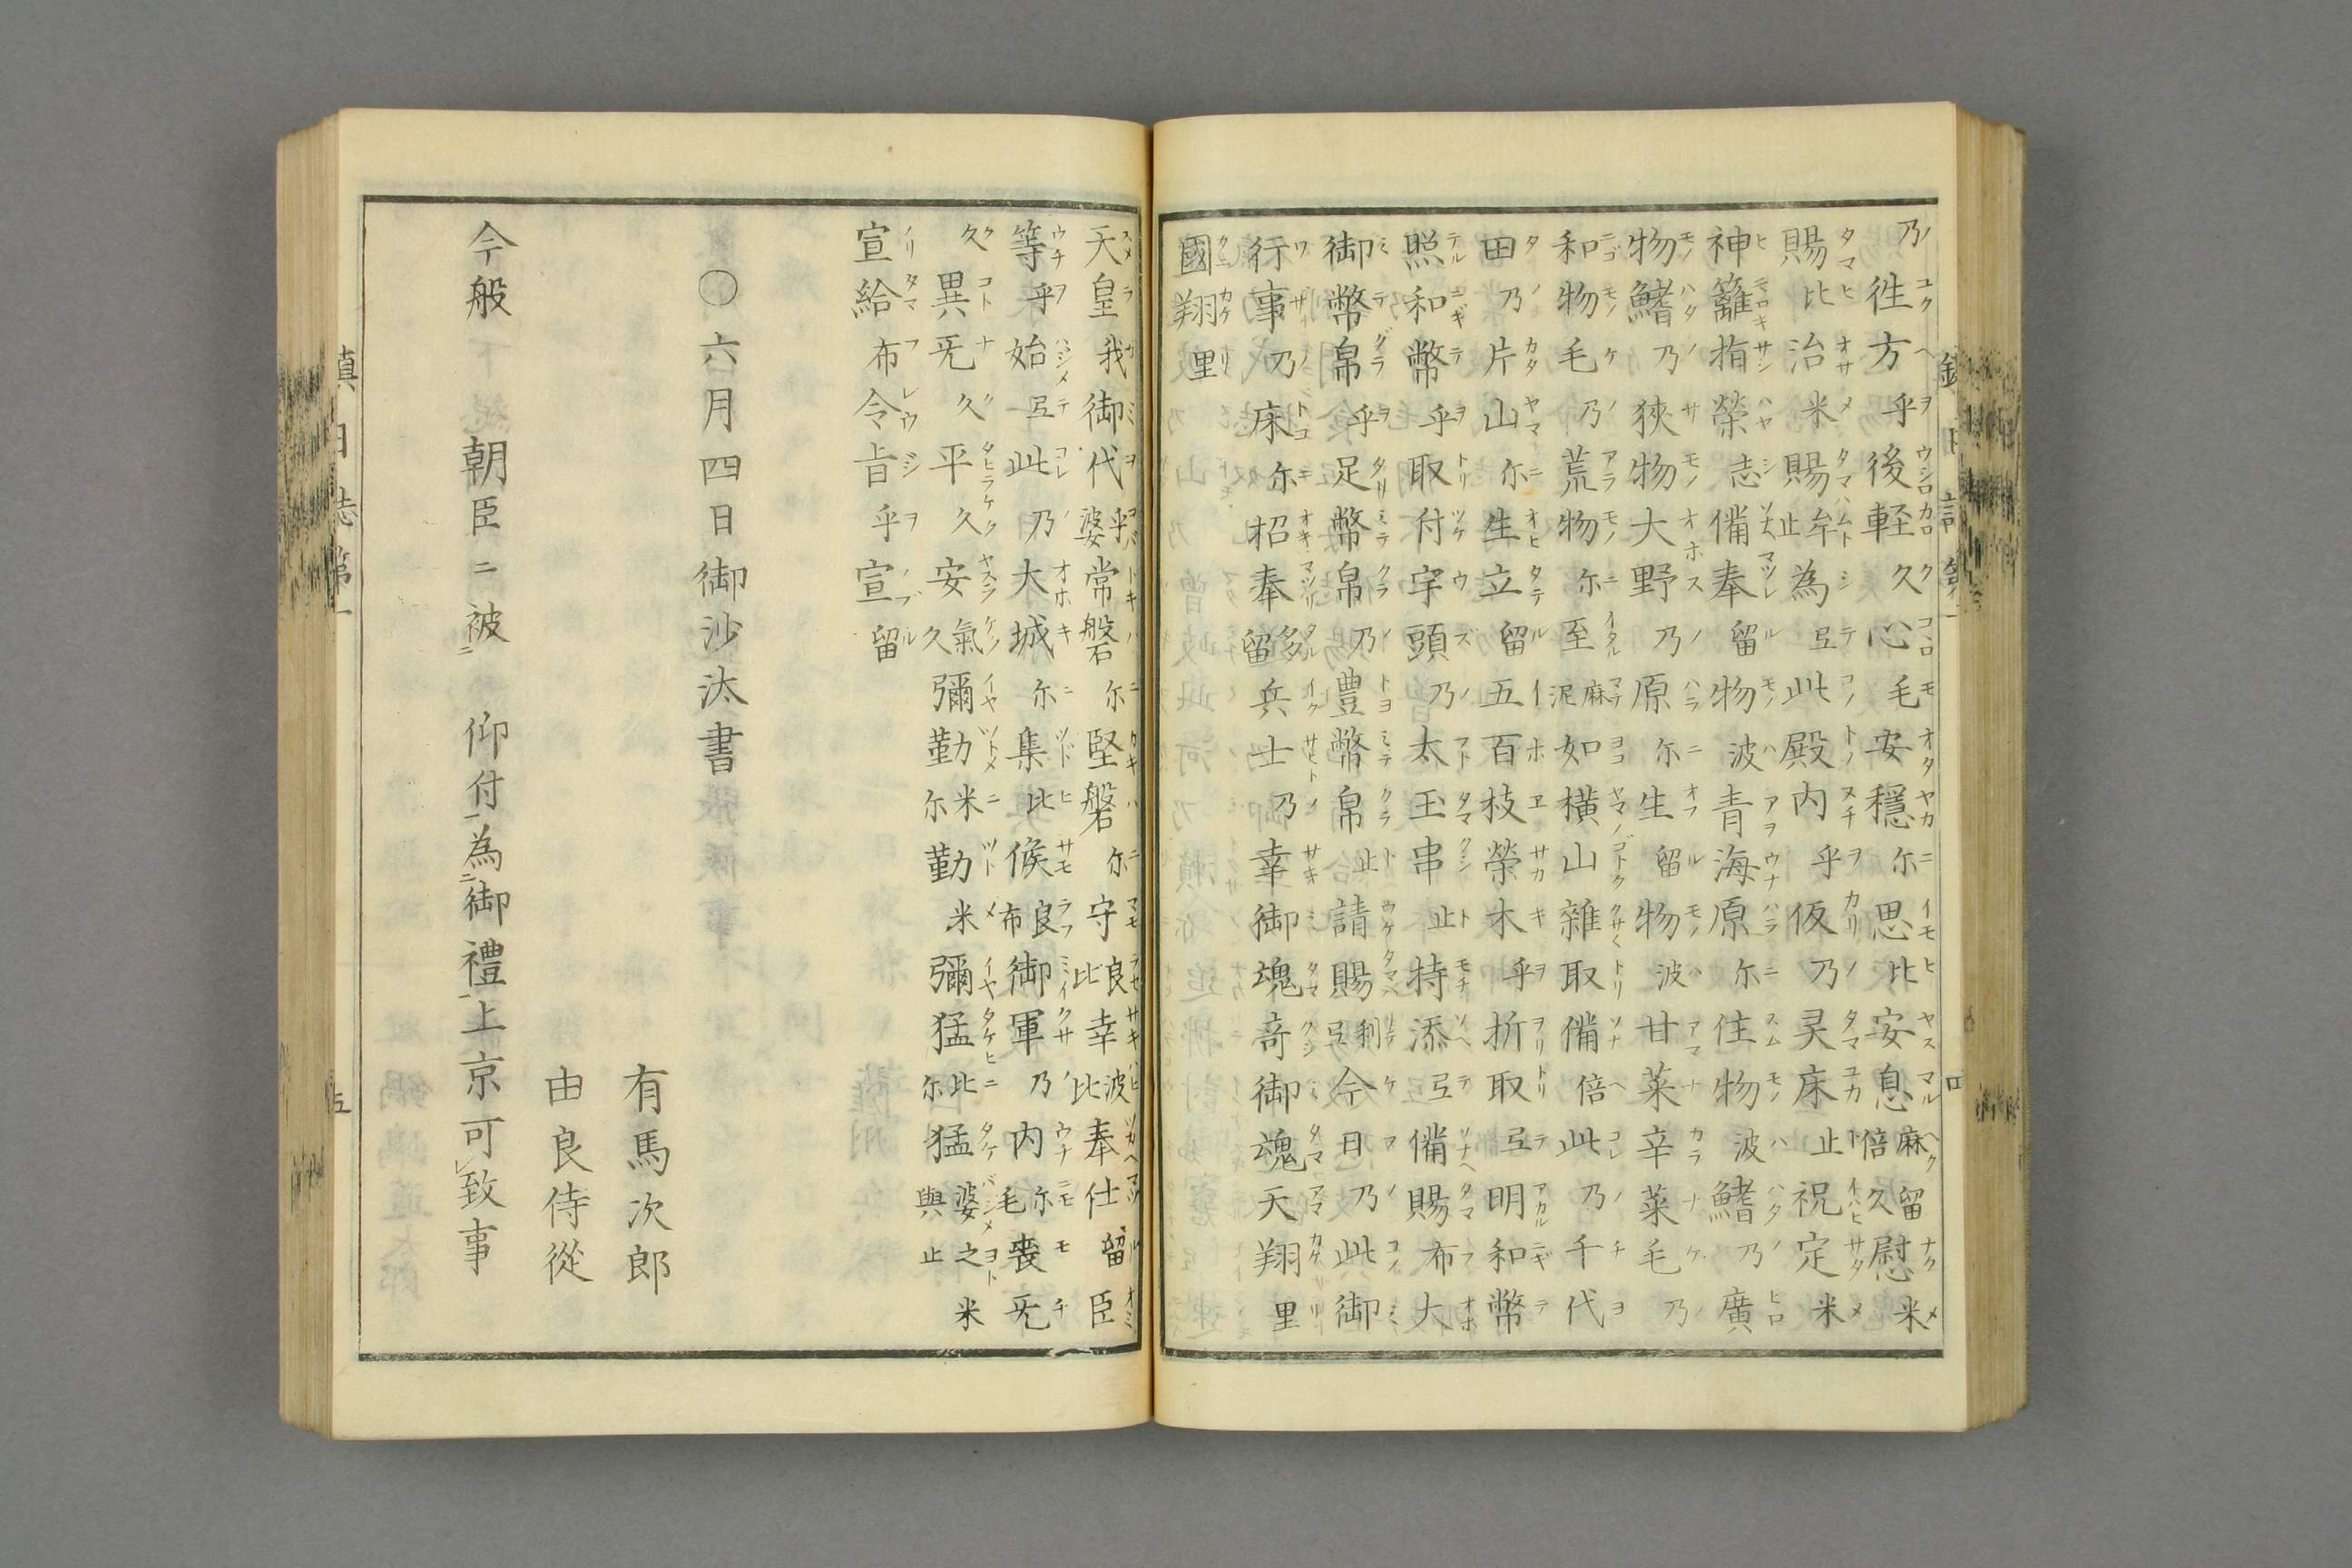 乃徃方乎後軽久心毛安穏尓思比安息麻倍留久慰米
賜比治米賜牟止為弖此殿内乎仮乃灵床止祝定米
神籬指榮志備奉留物波青海原尓住物波鰭乃廣
物鰭乃狹物大野乃原尓生留物波甘菜辛菜毛乃
和物毛乃荒物尓至麻泥如横山雜取備倍此乃千代
田乃片山尓生立留五百枝榮木乎折取弖明和幣
照和幣乎取付宇頭乃太玉串止持添弖備賜布大
御幣帛乎足幣帛乃豊幣帛止請賜利弖今日乃此御
行事乃床尓招奉多留兵士乃幸御魂奇御魂天翔里
國翔里
天皇我御代乎婆常磐尓堅磐尓守良比幸波比奉仕留臣
等乎始弖此乃大城尓集比候良布御軍乃内尓毛喪旡
久異旡久平久安氣久彌勤米尓勤米彌猛比尓猛婆之米與止
宣給布令旨乎宣留
〇六月四日御沙汰書
有馬次郎
由良侍從
今般 朝臣ニ被ニ 仰付一為ニ御禮一上京可レ致事
鎮日誌第一
五
鎮日誌第一
四